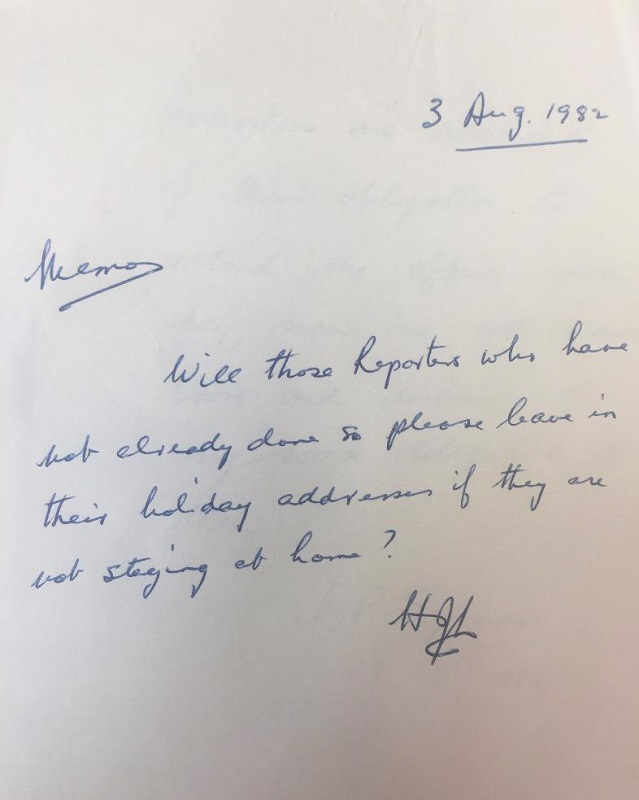 3 Aug. 1982
Memo
Will those Reporters who have
not already done so please leave in
their holiday addresses if they are
not staying at home?